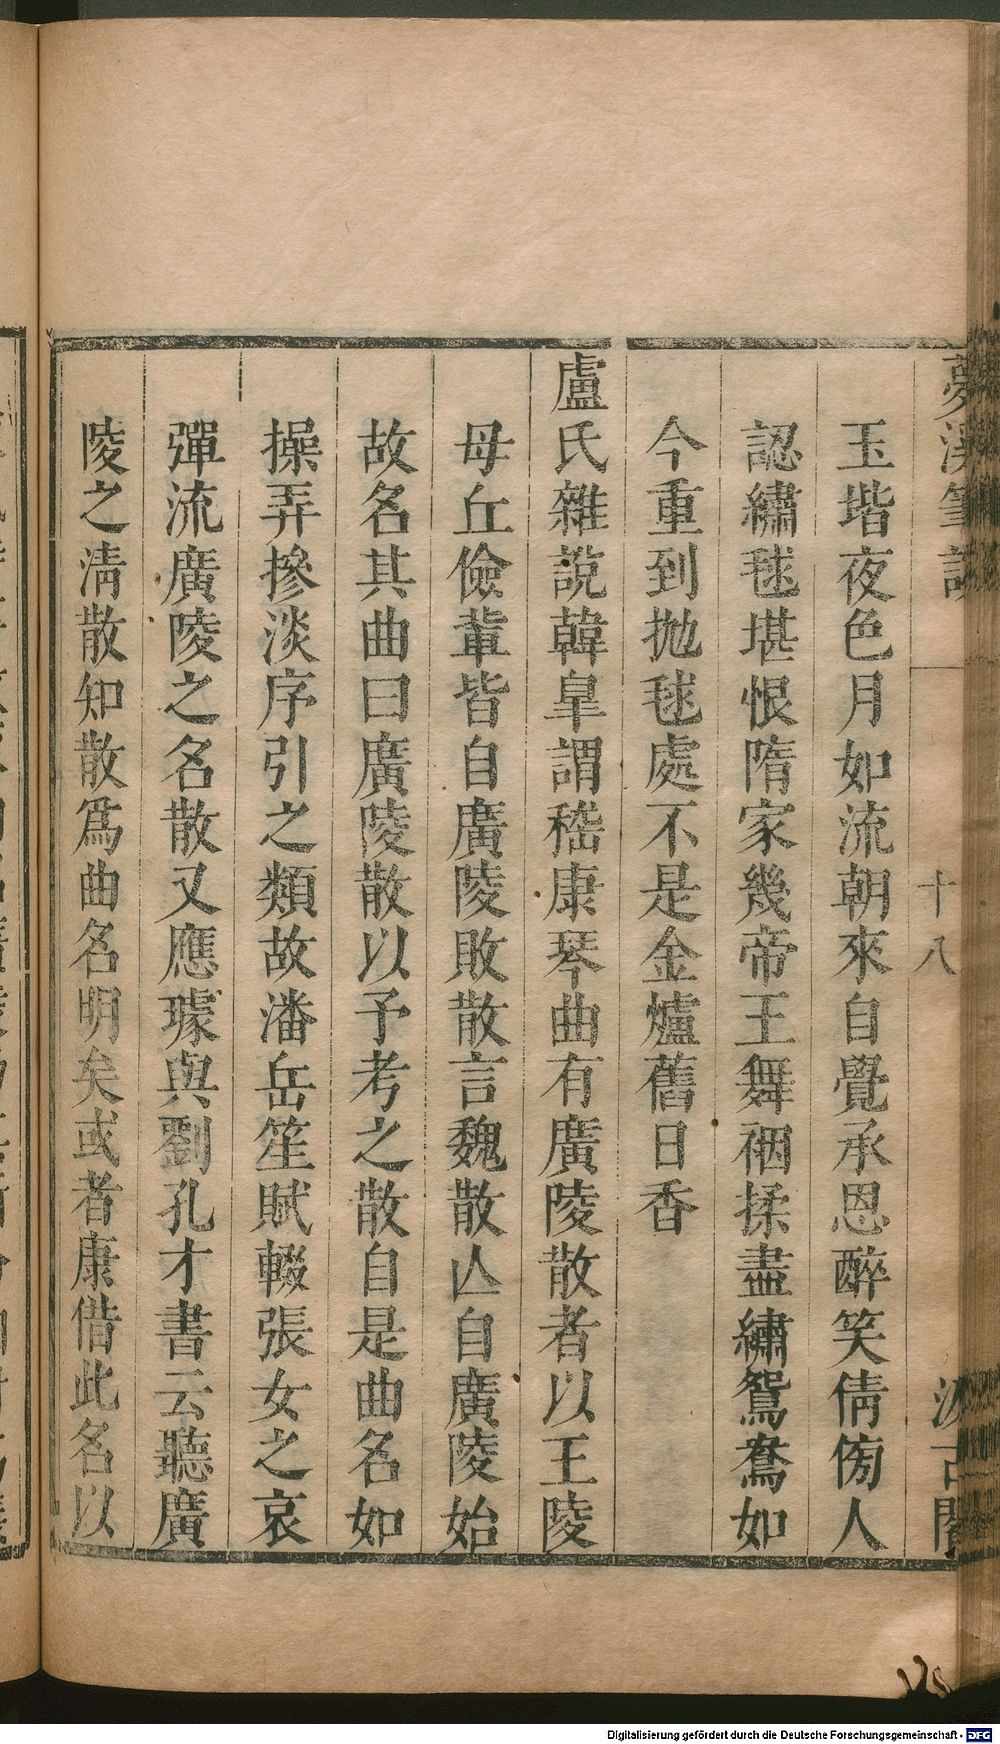 夢溪筆談 十八 汲古閣
玉堦夜色月如流朝來自覺承恩醉笑倩傍人
認繡毬堪恨隋家幾帝王舞裀揉盡繡鴛鴦如
今重到拋毬處不是金爐舊日香
盧氏雜說韓臯謂嵇康琴曲有廣陵散者以王陵
母丘儉輩皆自廣陵敗散言魏散亾自廣陵始
故名其曲曰廣陵散以予考之散自是曲名如
操弄摻淡序引之類故潘岳笙賦輟張女之哀
彈流廣陵之名散又應璩與劉孔才書云聽廣
陵之淸散知散爲曲名明矣或者康借此名以
128
Digitalisierung gefördert durch die Deutsche Forschungsgemeinschaft - DFG